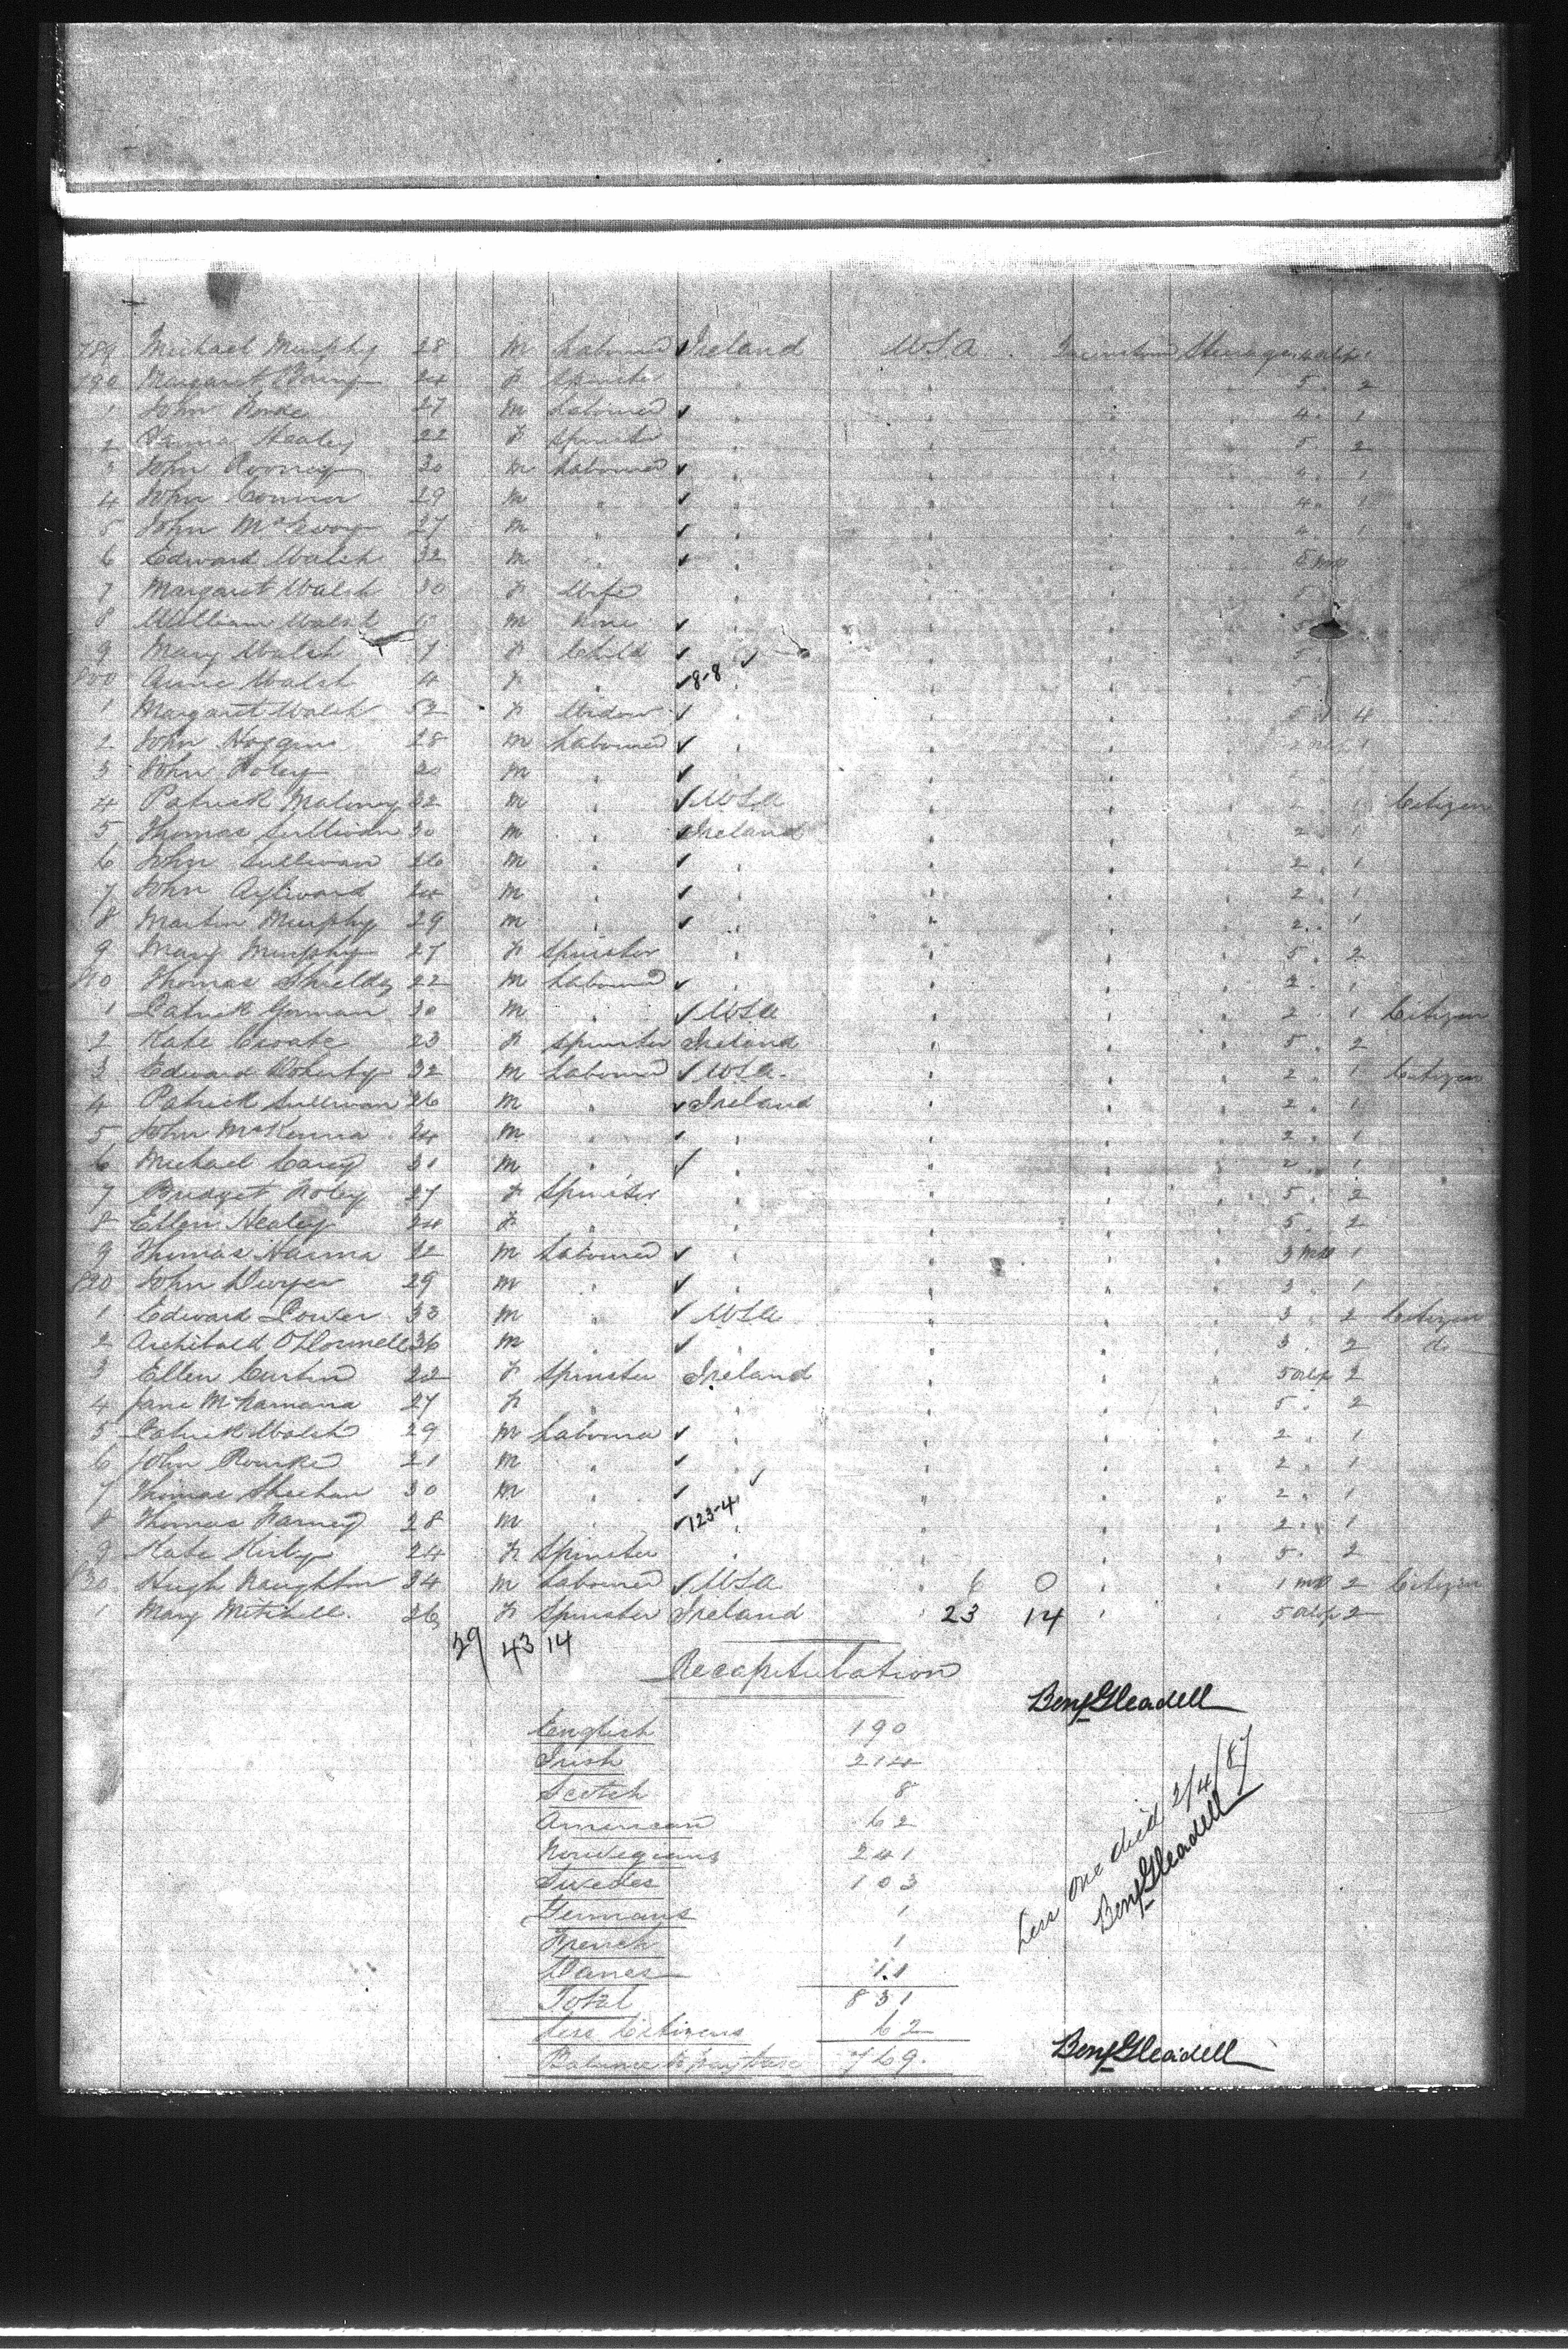 789 Michael Murphy 28 m Labourer Ireland U.S.A. Steerage 4
790 Margaret 24 f Spinster " 5 " 2
1 John 27 m Labourer " 4 " 1
2 Healey 22 f Spinster " 5 " 2
3 John Rooney 30 m Labourer " 4 " 1
4 John Connor 29 m " " 4 " 1
5 John McEvoy 27 m " " 4 " 1
6 Edward Walsh 32 m " " 5
7 Margaret Walsh 30 f Wife " 5
8 William Walsh m None " 5
9 Mary Walsh f Child " 5
800 Anne Walsh 4 f " 8-8 " 5
1 Margaret Walsh 52 f Widow " 5 " 4
2 John Hoggins 28 m Labourer " 2 1
3 John Foley 20 m " "
4 Patrick Maloney 32 m " USA 2 " 1 Citizen
5 Thomas Sullivan 30 m " Ireland 2 " 1
6 John Sullivan 26 m " " 2 " 1
7 John Aylward 24 m " " 2 " 1
8 Martin Murphy 29 m " " 2 " 1
9 Mary Murphy 27 f Spinster " 5 " 2
810 Thomas Shields 22 m Labourer " 2 " 1
1 Patrick Gorman 30 m " USA 2 " 1 Citizen
2 Kate 23 f Spinster Ireland 5 " 2
3 Edward Doherty 32 m Labourer USA 2 " 1 Citizen
4 Patrick Sullivan 26 m " Ireland 2 " 1
5 John McKenna 24 m " " 2 " 1
6 Michael Carey 31 m " " 2 " 1
7 Bridget Foley 27 f Spinster " 5 " 2
8 Ellen Healey 24 f " " 5 " 2
9 Thomas Hanna 32 m Labourer " 3 mid 1
820 John Dwyer 29 m " " 3 " 1
1 Edward Power 33 m " USA 3 " 2 Citizen
2 Archibald O'Donnell 36 m " " 3 " 2 do
3 Ellen Curtin 22 f Spinster Ireland 5 aft 2
4 Jane McNamara 27 f " " 5 " 2
5 Patrick Walsh 29 m Labourer " 2 " 1
6 John Rourke 21 m " " 2 " 1
7 Thomas Sheehan 30 m " " 2 " 1
8 Thomas 28 m " 123-4 " 2 " 1
9 Kate Kirby 24 f Spinster " 5 " 2
830 Hugh Naughton 34 m Labourer USA 6 0 1 mid 2 Citizen
1 Mary Mitchell 26 f Spinster Ireland 23 14 5 aft 2
29 43 14
Recapitulation
Benj Gleadell
English 190
Irish 214
Scotch 8
American 62
Norwegians 241
Swedes 103
Germans 1
French 1
Danes 11
Total 831
Less Citizens 62
Balance to pay tax 769
Less one died 2/4/87
Benj Gleadell
Benj Gleadell